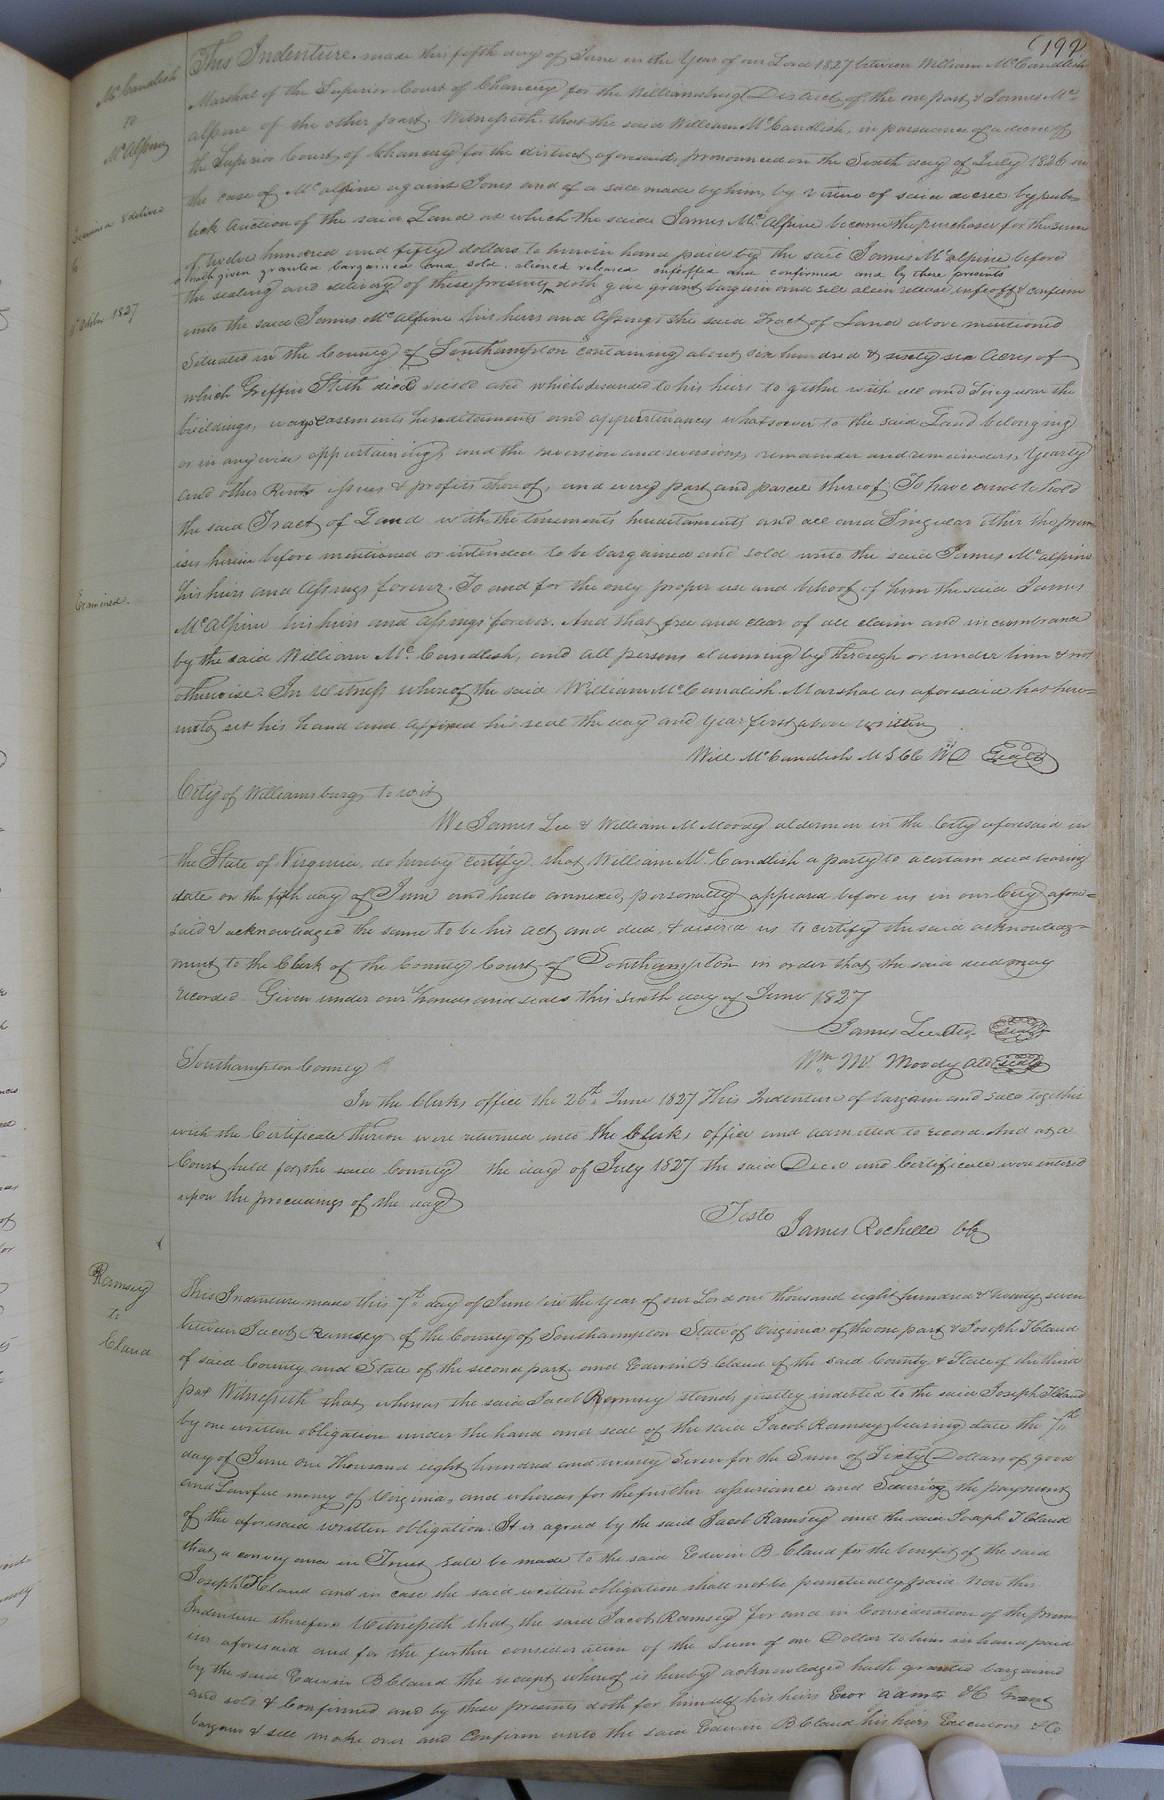 (199
McCandlish
to
McAlpine
Examined & delivd
to
October 1827
Examined.
This Indenture made this fifth day of June in the Year of our Lord 1827 between William McCandlish
Marshal of the Superior Court of Chancery for the Williamsburg District of the one part & James Mc-
alpine of the other part. Witnesseth that the said William McCandlish, in pursuance of a decree of
the Superior Court of Chancery for the district aforesaid pronounced on the Sixth day of July 1826 in
the case of Mcalpine against Jones and of a sale made by him, by virtue of said decree by pub=
lick Auction of the said Land at which the said James McAlpine became the purchaser for the sum
of twelve hundred and fifty dollars to him in hand paid by the said James Mcalpine before
hath given granted bargained and sold aliened released enfeoffed and confirmed and by these presents
the sealing and delivery of these presents, doth give grant bargain and sell alien release, infeoff & confirm
unto the said James McAlpine his heirs and Assings the said Tract of Land above mentioned
Situated in the County of Southampton containing about six hundred & sixty six Acres of
which Griffin Stith died seised and which descended to his heirs to gether with all and Singular the
buildings, ways easements hereditaments and appurtenances whatsoever to the said Land belonging
or in any wise appertaining, and the reversion and reversions, remainder and remainders, Yearly
and other Rents issues & profits thereof, and every part and parcel thereof To have and to hold
the said Tract of Land with the tenements hereditaments and all and Singular other the prem
ises herein before mentioned or intended to be bargained and sold unto the said James Mcalpine
his heirs and Assings forever. To and for the only proper use and behoof of him the said James
McAlpine his heirs and Assings forever. And that free and clear of all claim and incumbrance
by the said William McCandlish, and all persons claiming by through or under him & not
otherwise. In Witness whereof the said William McCandlish Marshal as aforesaid has here=
unto set his hand and affixed his seal the day and year first above written
Will McCandlish M S C C W D Seal
City of Williamsburg to wit
We James Lee & William M Moody aldermen in the City aforesaid in
the State of Virginia, do hereby certify that William McCandlish a party to a certain deed bearing
date on the fifth day of June and hereto annexed, personally appeared before us in our City afore=
said & acknowledged the same to be his act and deed, & desired us to certify the said acknowledg=
ment to the Clerk of the County Court of Southampton in order that the said deed may
recorded Given under our hands and seals this sixth day of June 1827
James Lee Seal
Wm M. Moody Ald Seal
Southampton County
In the Clerks office the 26th June 1827 This Indenture of bargain and sale together
with the Certificate thereon were returned into the Clerks office and admitted to record And at a
Court held for the said County the day of July 1827 the said Deed and Certificate were entered
upon the proceedings of the day
Teste
James Rochelle CC
Ramsey
to
Claud
This Indenture made this 7th day of June in the Year of our Lord one thousand eight hundred & twenty seven
between Jacob Ramsey of the County of Southampton State of Virginia of the one part & Joseph T Claud
of said County and State of the second part and Edwin B Claud of the said County & State of the third
part Witnesseth that whereas the said Jacob Ramsey stands justly indebted to the said Joseph T Claud
by one written obligation under the hand and seal of the said Jacob Ramsey bearing date the 7th
day of June One Thousand eight hundred and twenty Seven for the Sum of Sixty Dollars of good
and Lawfull money of Virginia, and whereas for the further assurance and Securing the payment
of the aforesaid written obligation. It is agreed by the said Jacob Ramsey and the said Joseph T Claud
that a conveyance in Trust sale be made to the said Edwin B Claud for the benefit of the said
Joseph T Claud and in case the said written obligation shall not be punctually paid Now this
Indenture therefore Witnesseth that the said Jacob Ramsey for and in Consideration of the prem
ises aforesaid and for the further consideration of the Sum of one Dollar to him in hand paid
by the said Edwin B Claud the receipt whereof is hereby acknowledged hath granted bargained
and sold & Confirmed and by these presents doth for himself his heirs Exor admrs &C Grant
bargain & sell make over and Confirm unto the said Edwin B Claud his heirs Executors &C